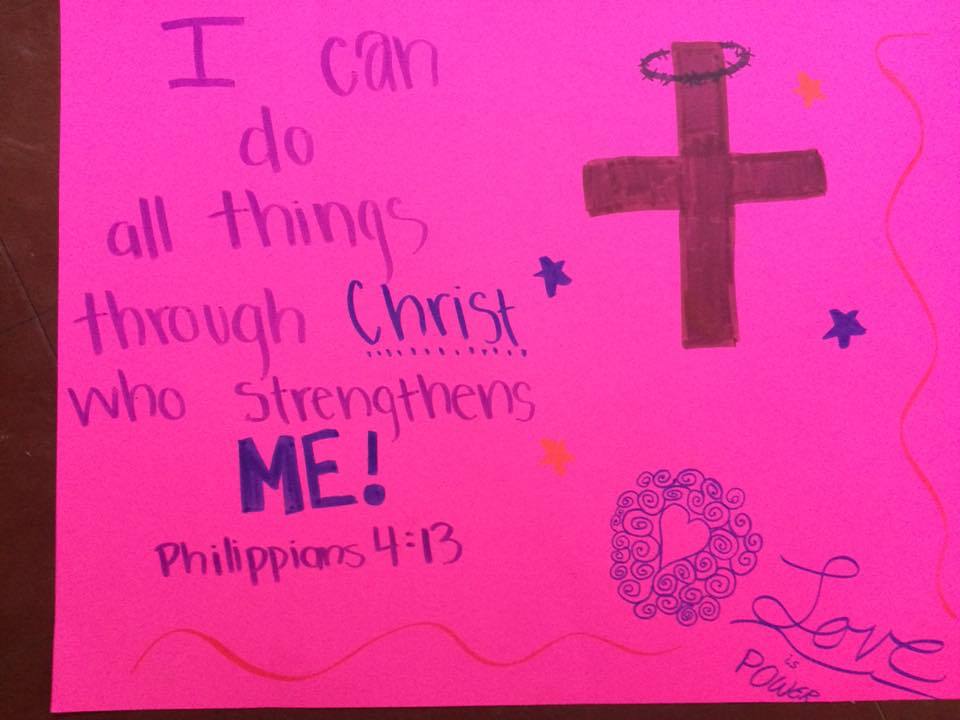 I can
do
all things
through Christ
who strengthens
ME!
Philippians 4:13
Love
is
POWER